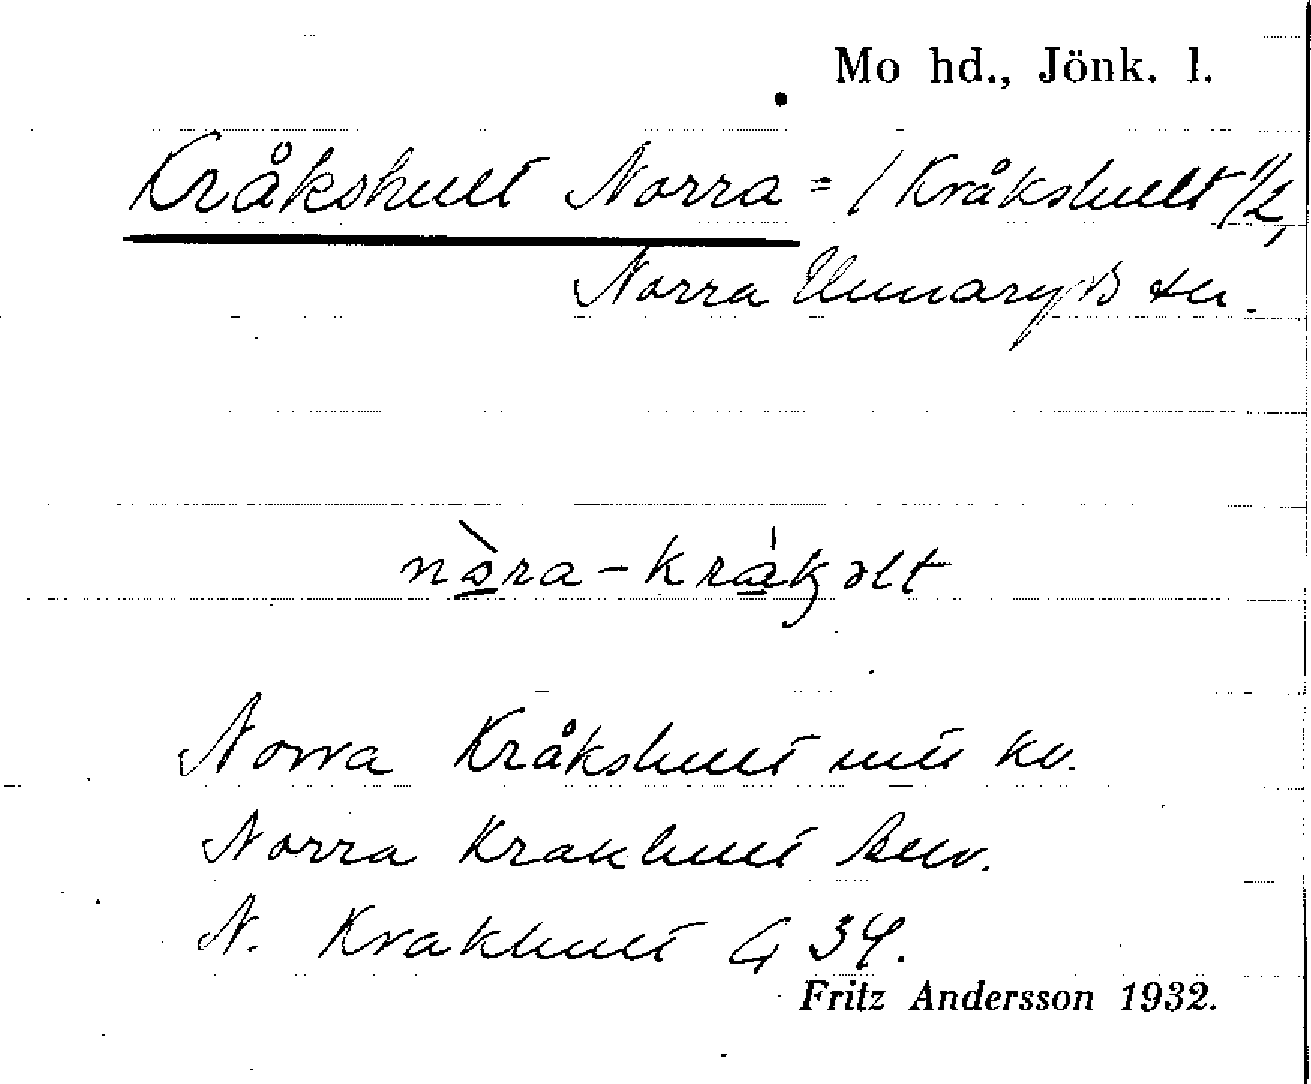 Mo hd., Jönk. l.
Kråkshult Norra = / Kråkshult 1/2,
Norra Unnaryds sn.
nòra-kråkəlt
Norra Kråkshult kv.
Norra Krakhult
N. Krakhult G 34.
Fritz Andersson 1932.